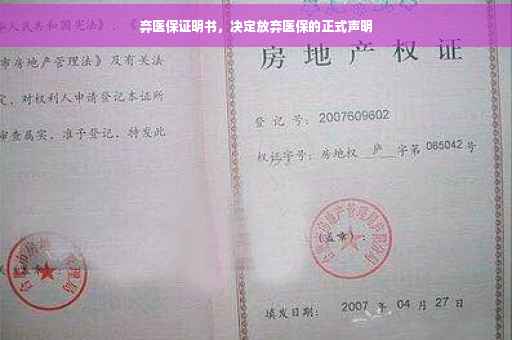 弃医保证明书，决定放弃医保的正式声明
华人民共和国宪法》、《
市房地产管理法》及有关法
定，对权利人申请登记本证所
审查属实，准予登记，特发此
房地产权证
登记号：2007609602
权证字号：房地权 庐 字第 085042 号
（盖章）：
填发日期： 2007 年 04 月 27 日